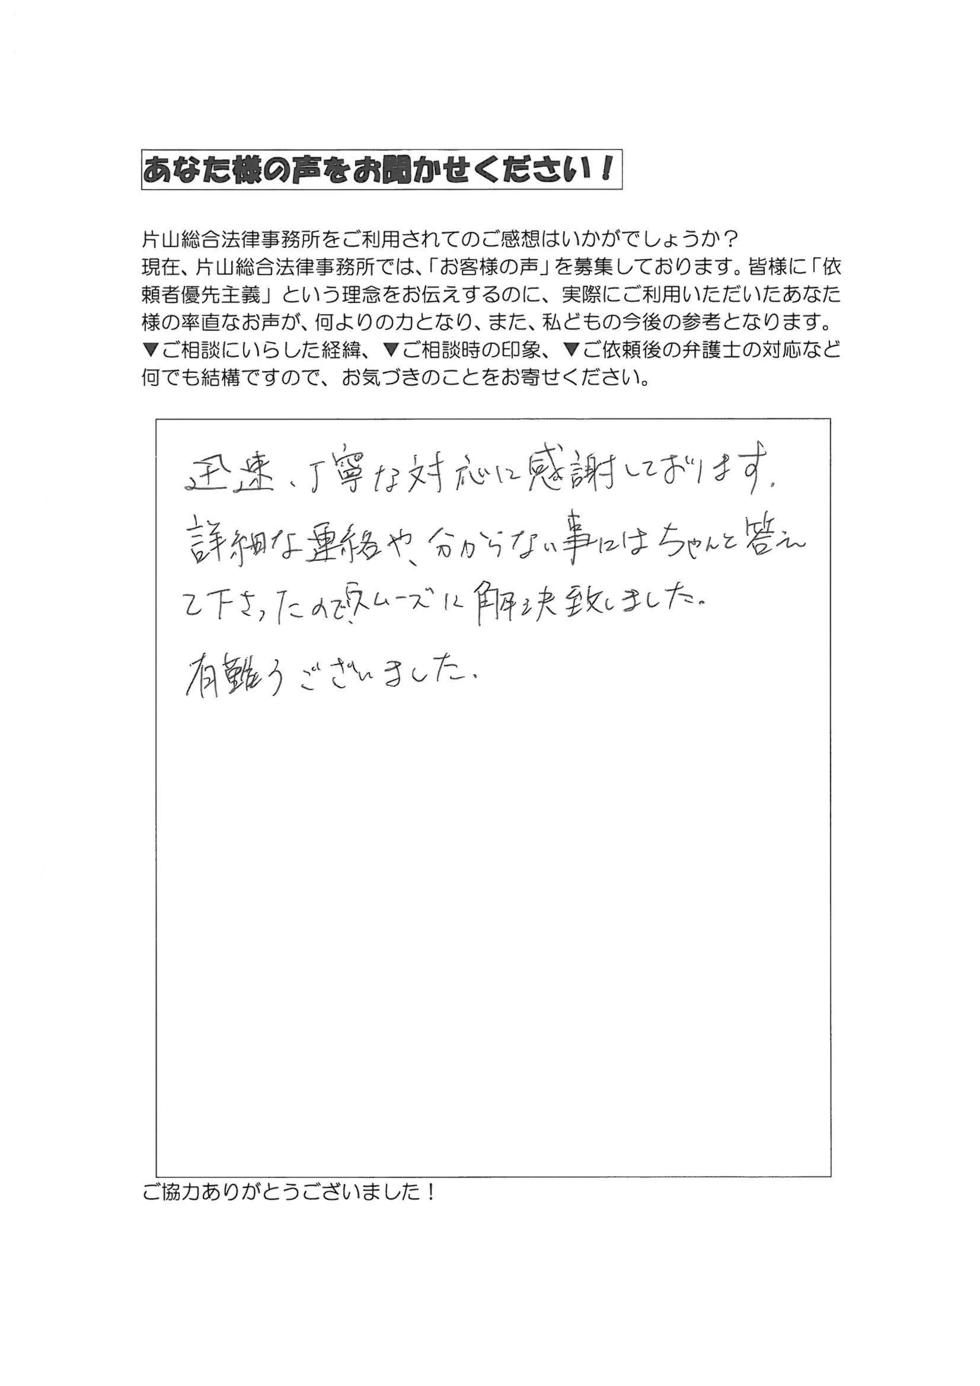 あなた様の声をお聞かせください！
片山総合法律事務所をご利用されてのご感想はいかがでしょうか？
現在、片山総合法律事務所では、「お客様の声」を募集しております。皆様に「依
頼者優先主義」という理念をお伝えするのに、実際にご利用いただいたあなた
様の率直なお声が、何よりの力となり、また、私どもの今後の参考となります。
▼ご相談にいらした経緯、▼ご相談時の印象、▼ご依頼後の弁護士の対応など
何でも結構ですので、お気づきのことをお寄せください。
迅速、丁寧な対応に感謝しております。
詳細な連絡や、分からない事にはちゃんと答え
て下さったので、スムーズに解決致しました。
有難うございました。
ご協力ありがとうございました！